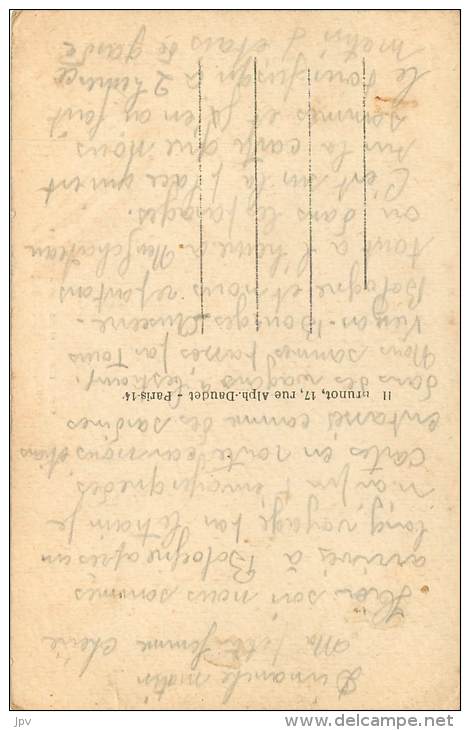 Dimanche matin
Ma petite femme chérie
Hier soir nous sommes
arrivés à Bologne après un
long voyage par le train je
n'ai pu t'envoyer que des
cartes en route car nous étions
entassés comme des sardines
dans des wagons à bestiaux.
Nous sommes passés par Tours
Vierzon - Bourges - Auxerre -
Bologne et nous repartons
tout à l'heure à Neufchateau
ou dans les parages.
C'est sur la place
sur la carte que nous
sommes et j'en ai fait
le tour jusqu'à 2 heures
matin j'étais de garde
H brunot, 17, rue Alph.-Daudet - Paris-14
jpv
www.delcampe.net